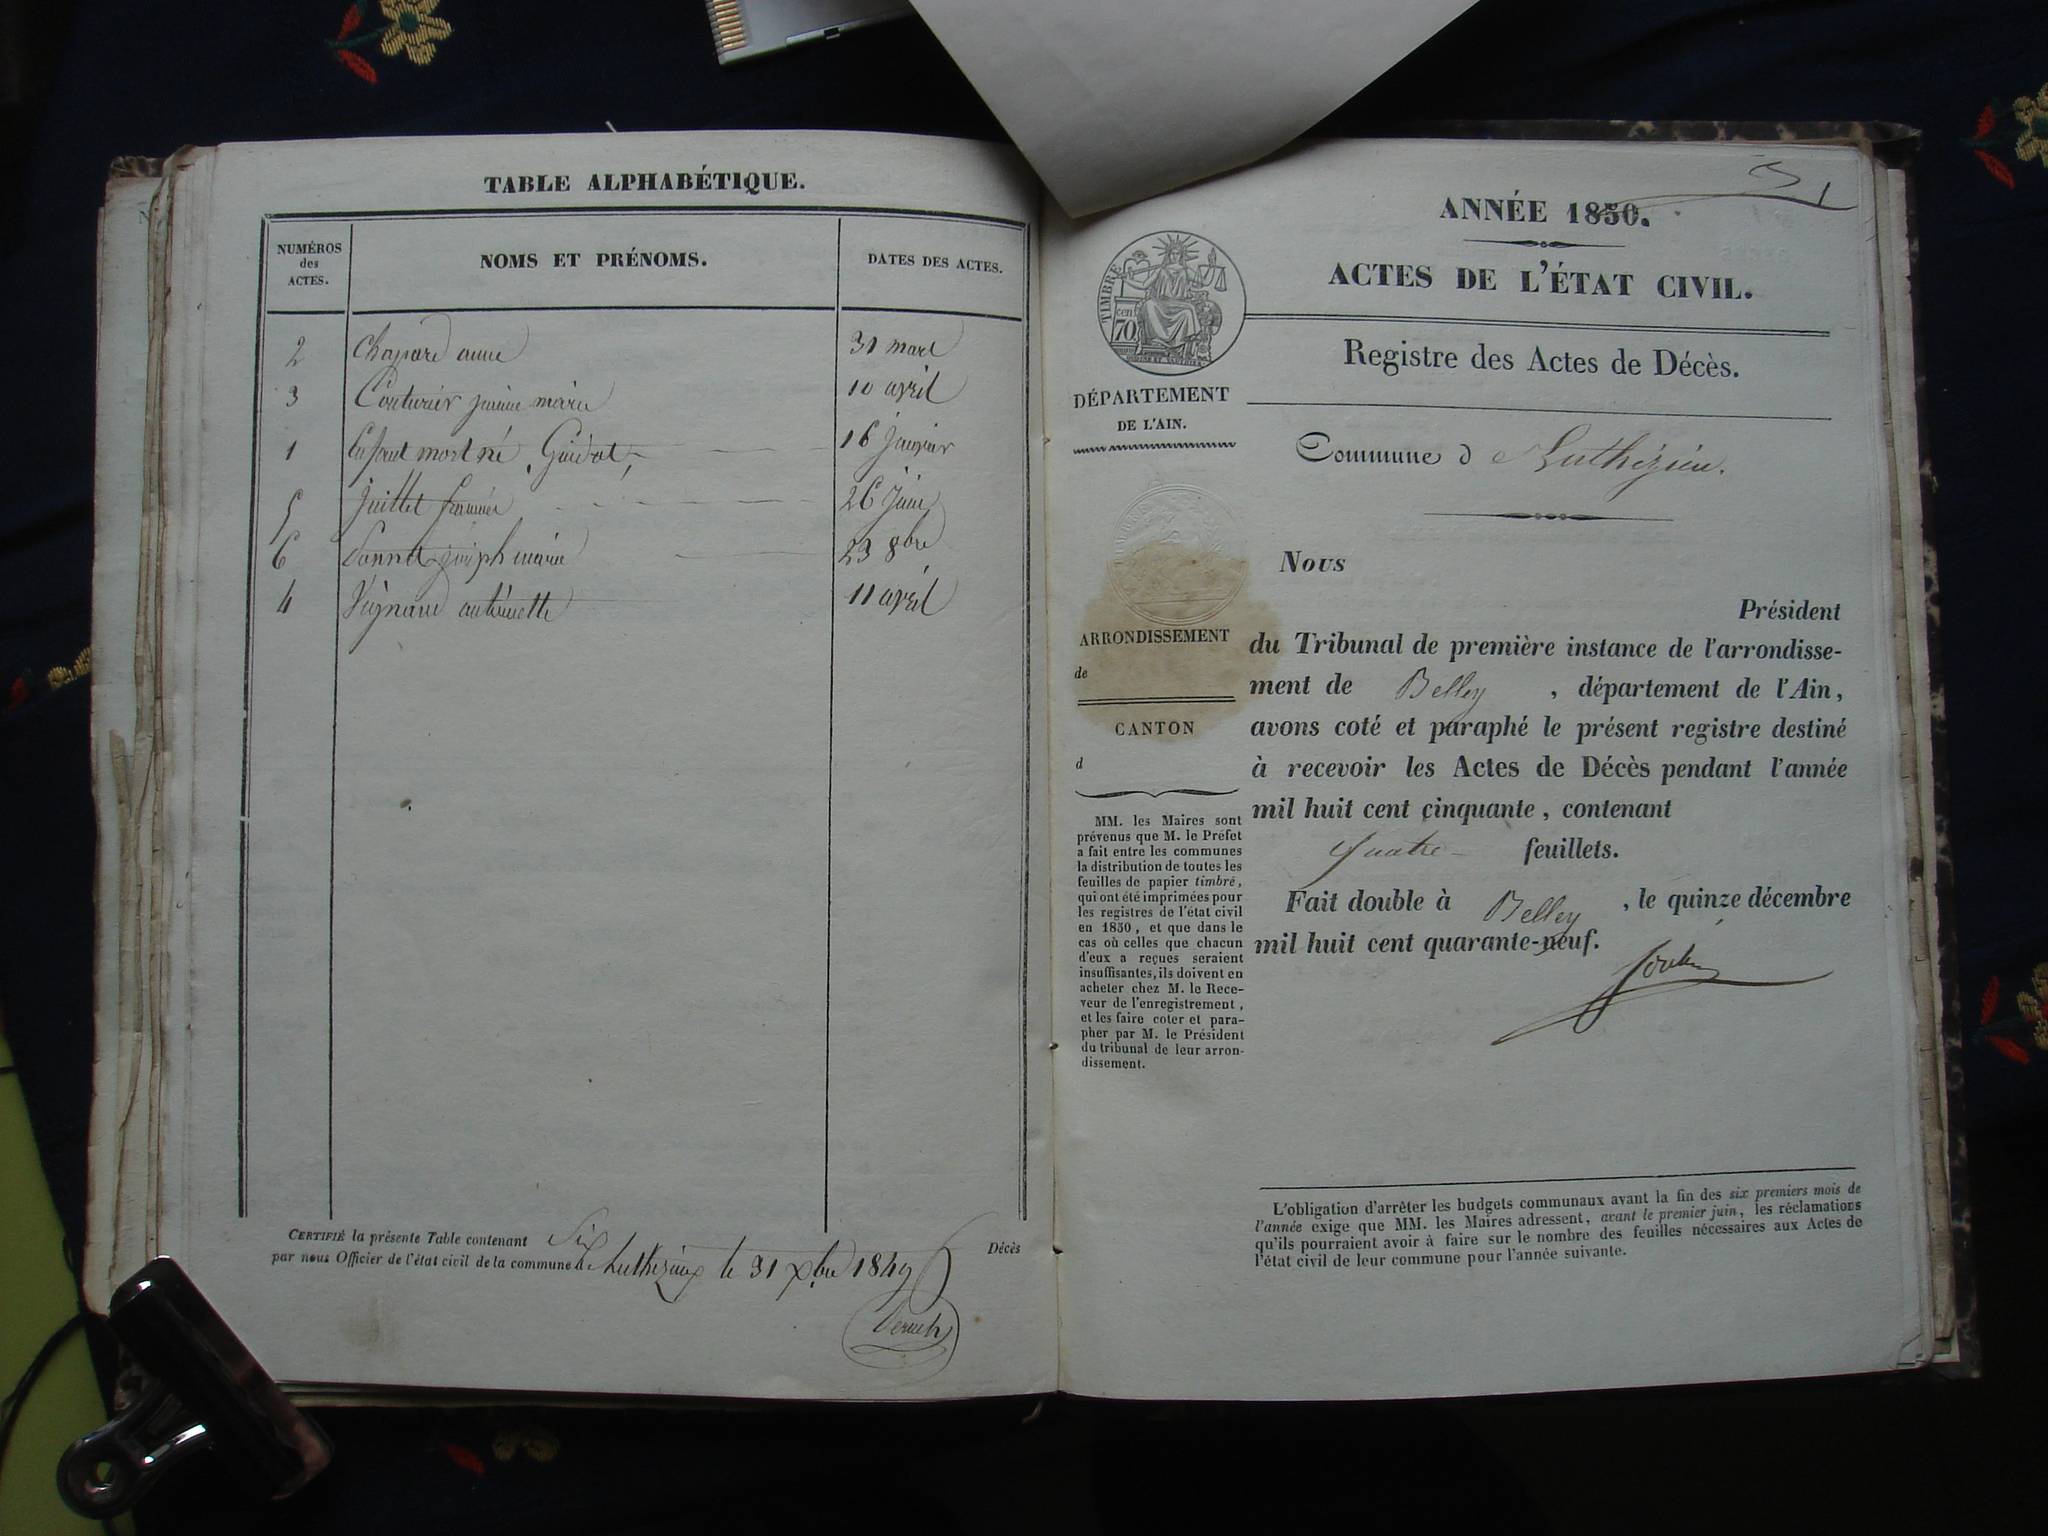 TABLE ALPHABÉTIQUE.
NUMÉROS
des
ACTES.
NOMS ET PRÉNOMS.
DATES DES ACTES.
2 Chapard anne 31 mars
3 Couturier jeanne marie 10 avril
1 Enfant mort né, Guidot, 16 Janvier
5 juillet 26 Juin
6 joseph marie 23 8bre
4 Vignard antoinette 11 avril
CERTIFIÉ la présente Table contenant Six Décès
par nous Officier de l'état civil de la commune de Luthézieu le 31 Xbre 1849
ANNÉE 1850.
1
ACTES DE L'ÉTAT CIVIL.
TIMBRE
70 cen
Registre des Actes de Décès.
DÉPARTEMENT
DE L'AIN.
Commune de Luthézieu.
Nous
Président
du Tribunal de première instance de l'arrondisse-
ment de Belley, département de l'Ain,
avons coté et paraphé le présent registre destiné
à recevoir les Actes de Décès pendant l'année
mil huit cent cinquante, contenant
quatre feuillets.
Fait double à Belley, le quinze décembre
mil huit cent quarante-neuf.
ARRONDISSEMENT
de
CANTON
d
MM. les Maires sont
prévenus que M. le Préfet
a fait entre les communes
la distribution de toutes les
feuilles de papier timbré,
qui ont été imprimées pour
les registres de l'état civil
en 1850, et que dans le
cas où celles que chacun
d'eux a reçues seraient
insuffisantes, ils doivent en
acheter chez M. le Rece-
veur de l'enregistrement,
et les faire coter et para-
pher par M. le Président
du tribunal de leur arron-
dissement.
L'obligation d'arrêter les budgets communaux avant la fin des six premiers mois de
l'année exige que MM. les Maires adressent, avant le premier juin, les réclamations
qu'ils pourraient avoir à faire sur le nombre des feuilles nécessaires aux Actes de
l'état civil de leur commune pour l'année suivante.